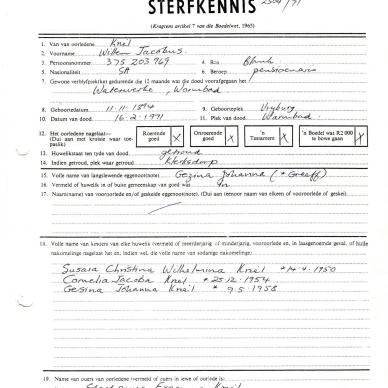 STERFKENNIS
(Kragtens artikel 7 van die Boedelwet, 1965)
1. Van van oorledene Kneil
2. Voorname Willem Jacobus.
3. Persoonsnommer 375 203 769 4. Ras Blank
5. Nasionaliteit SA 6. Beroep pensioenaris
7. Gewone verblyfsdistrikte gedurende die 12 maande wat die dood voorafgegaan het
Waterwerke, Warmbad.
8. Geboortedatum 11.11.1894 9. Geboorteplek Vryburg
10. Datum van dood 16.2.1971 11. Plek van dood Warmbad.
12. Het oorledene nagelaat— (Dui aan met kruise waar toepaslik) Roerende goed X Onroerende goed X 'n Testament X 'n Boedel wat R2 000 te bowe gaan X
13. Huwelikstaat ten tyde van dood getroud
14. Indien getroud, plek waar getroud Klerksdorp
15. Volle name van langslewende eggenoot(note) Gezina Johanna (* Greeff)
16. Vermeld of huwelik in of buite gemeenskap van goed was in
17. Naam(name) van vooroorlede en/of geskeide eggenoot(note). (Dui aan teenoor naam van elkeen of vooroorlede of geskei).
18. Volle name van kinders van elke huwelik (vermeld of meerderjarig of minderjarig, vooroorlede en, in laasgenoemde geval, of hulle
nakomelinge nagelaat het en, indien wel, die volle name van sodanige nakomelinge):
Susara Christina Wilhelmina Kneil * 14.4.1950
Cornelia Jacoba Kneil * 25.12.1954
Gesina Johanna Kneil * 9.5.1958
19. Name van ouers van oorledene (vermeld of ouers in lewe of oorlede is):